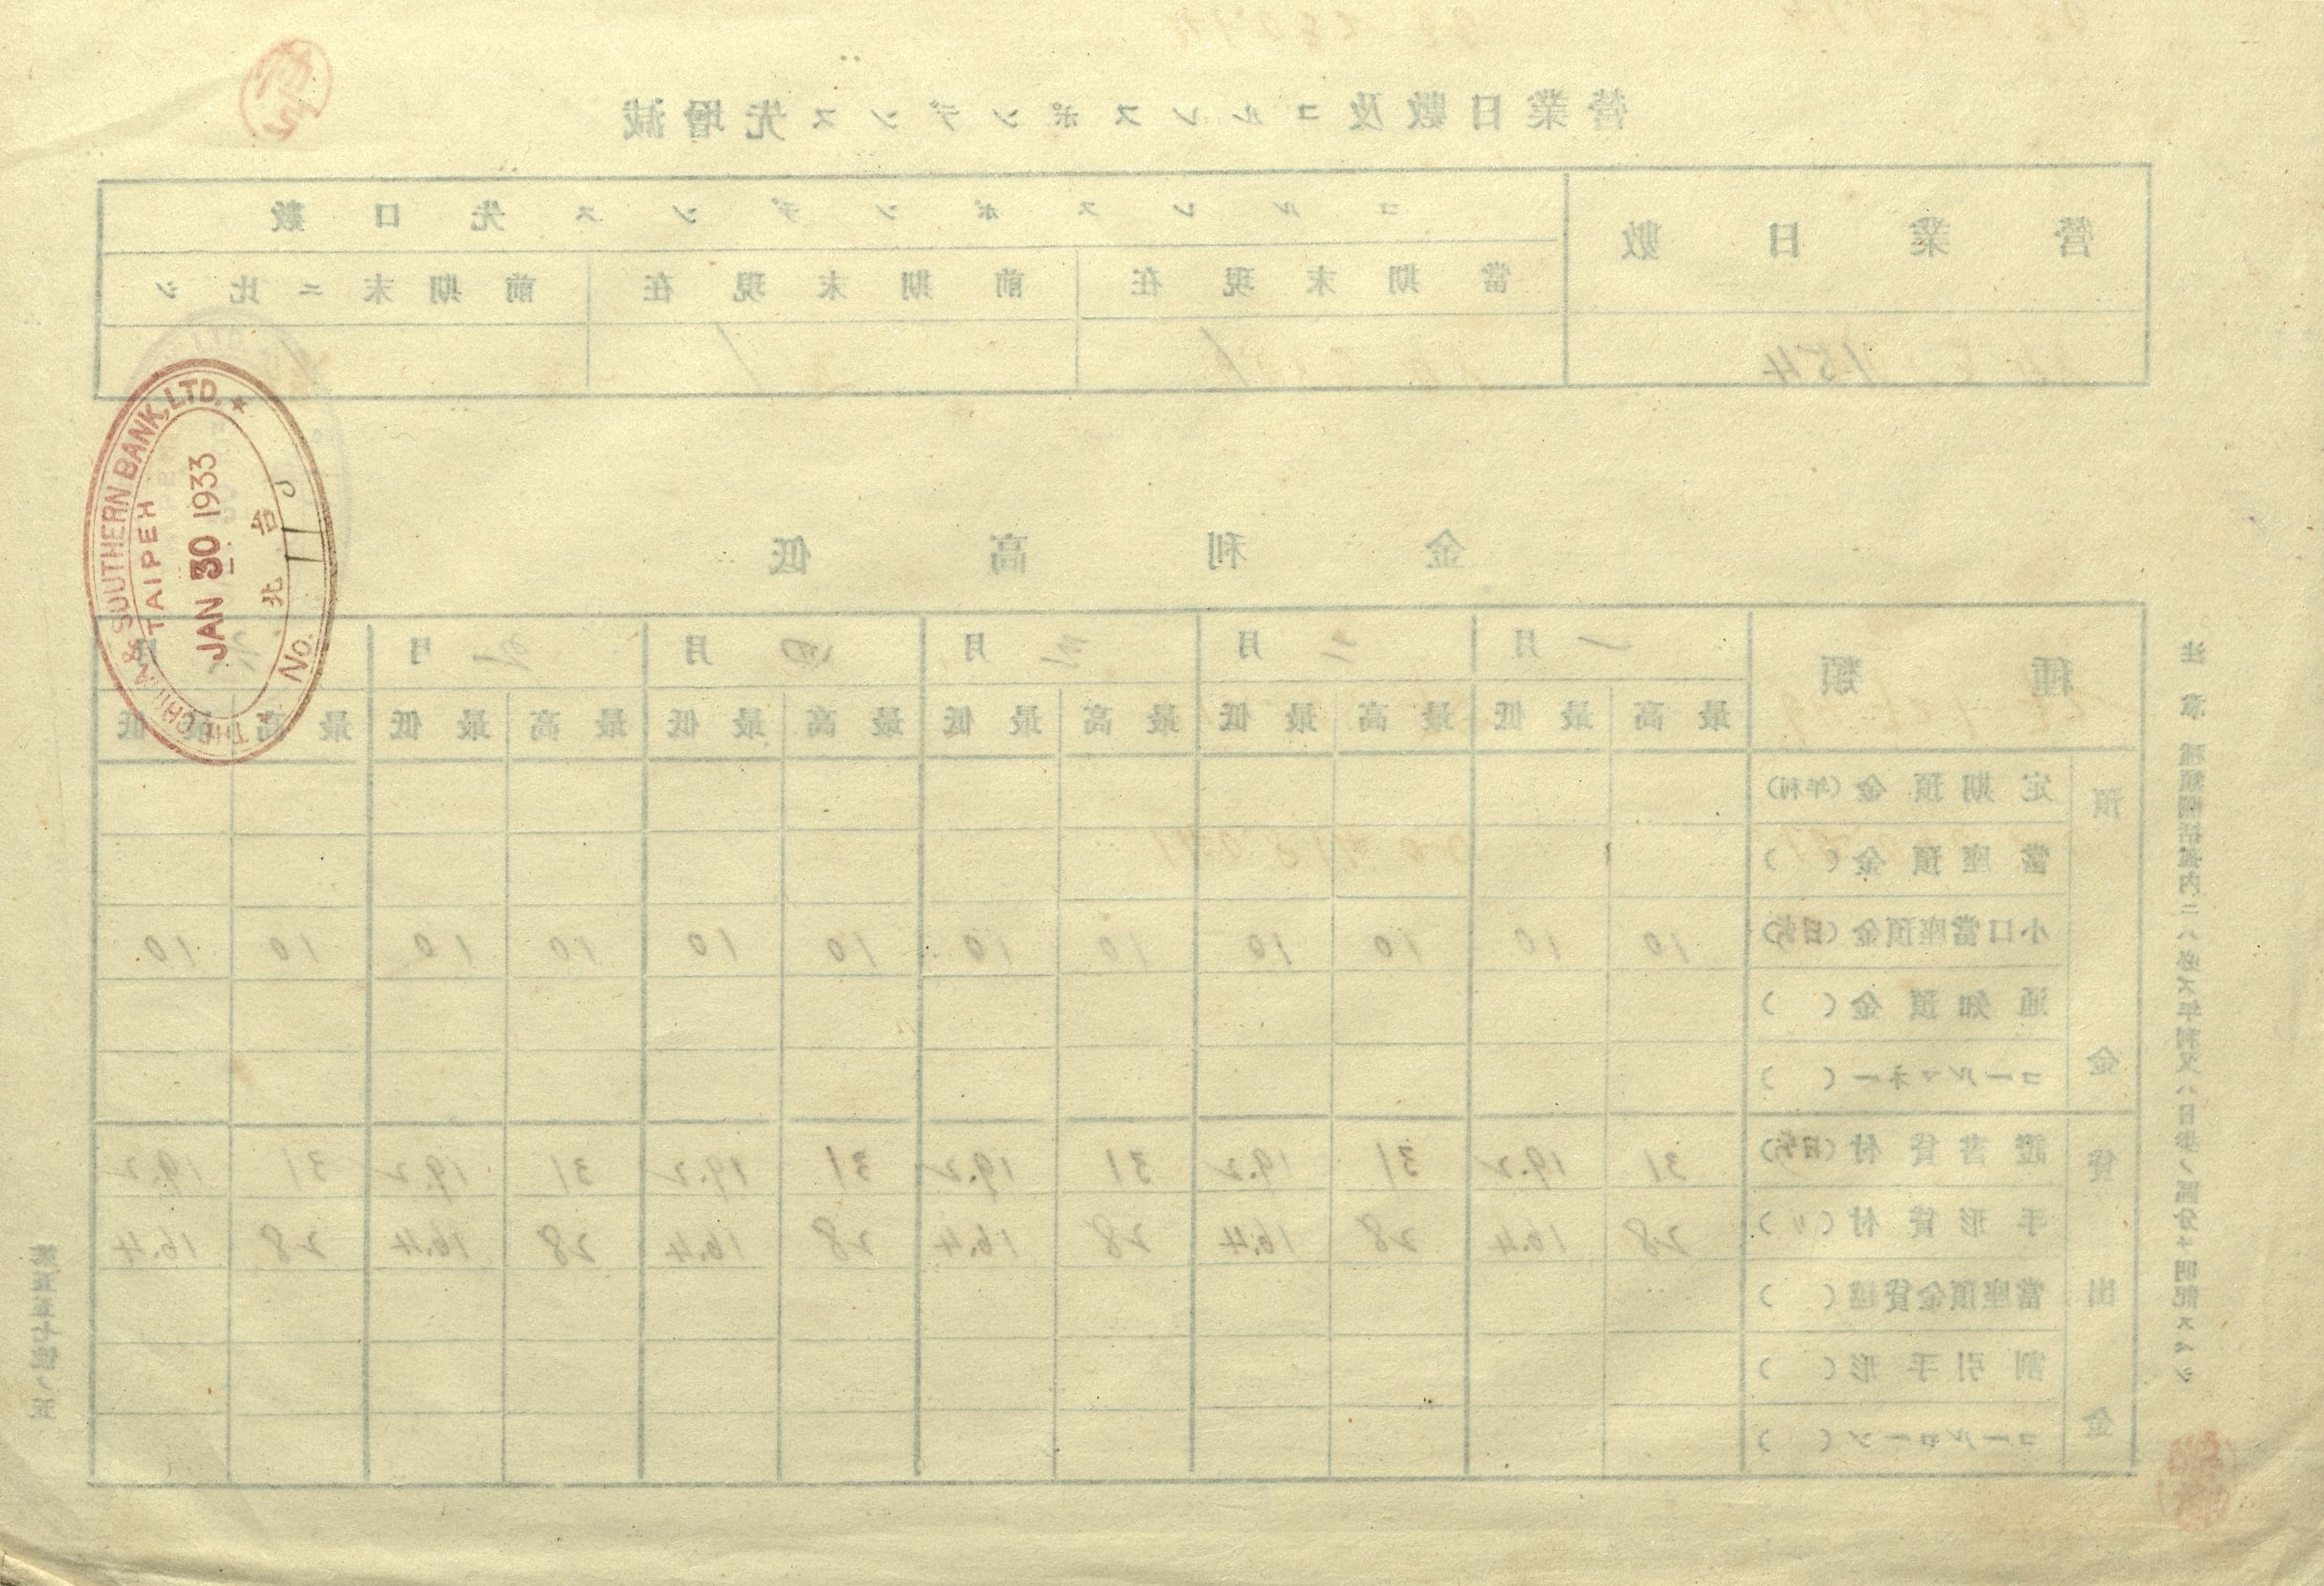 營業日數及コルレスポンデンス先增減
營業日數
コルレスポンデンス先口數
當期末現在
前期末現在
前期末ニ比シ
154
1
1
THE CHINA & SOUTHERN BANK, LTD.
TAIPEH
JAN 30 1933
台北
No.
金利高低
種類
一月
二月
三月
四月
五月
六月
最高 最低 最高 最低 最高 最低 最高 最低 最高 最低 最高 最低
預金
定期預金(年利)
當座預金( )
小口當座預金(日歩) 10 10 10 10 10 10 10 10 10 10 10 10
通知預金( )
コールマネー( )
貸出金
證書貸付(日歩) 31 19.2 31 19.2 31 19.2 31 19.2 31 19.2 31 19.2
手形貸付(〃) 28 16.4 28 16.4 28 16.4 28 16.4 28 16.4 28 16.4
當座預金貸越( )
割引手形( )
コールローン( )
注意 種類欄括弧內ニハ必ズ年利又ハ日歩ノ區分ヲ明記スベシ